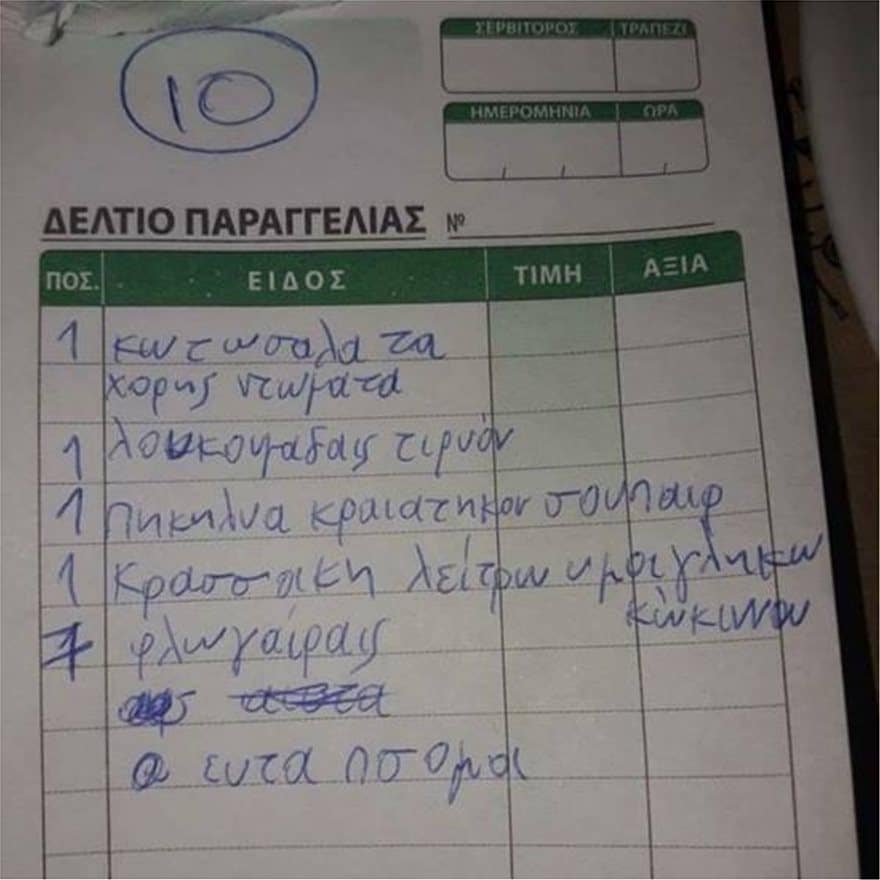 10
ΣΕΡΒΙΤΟΡΟΣ ΤΡΑΠΕΖΙ
ΗΜΕΡΟΜΗΝΙΑ ΩΡΑ
ΔΕΛΤΙΟ ΠΑΡΑΓΓΕΛΙΑΣ №
ΠΟΣ. ΕΙΔΟΣ ΤΙΜΗ ΑΞΙΑ
1 κωτωσαλατα
χορης ντωματα
1 λουκουμαδαις τιρυόν
1 πηκηλυα κραιατηκον σουπαιρ
1 κρασσακη λείτρω υμοιγληκω
κώκινου
7 φλωγαίραις
ευτα ποσομαι